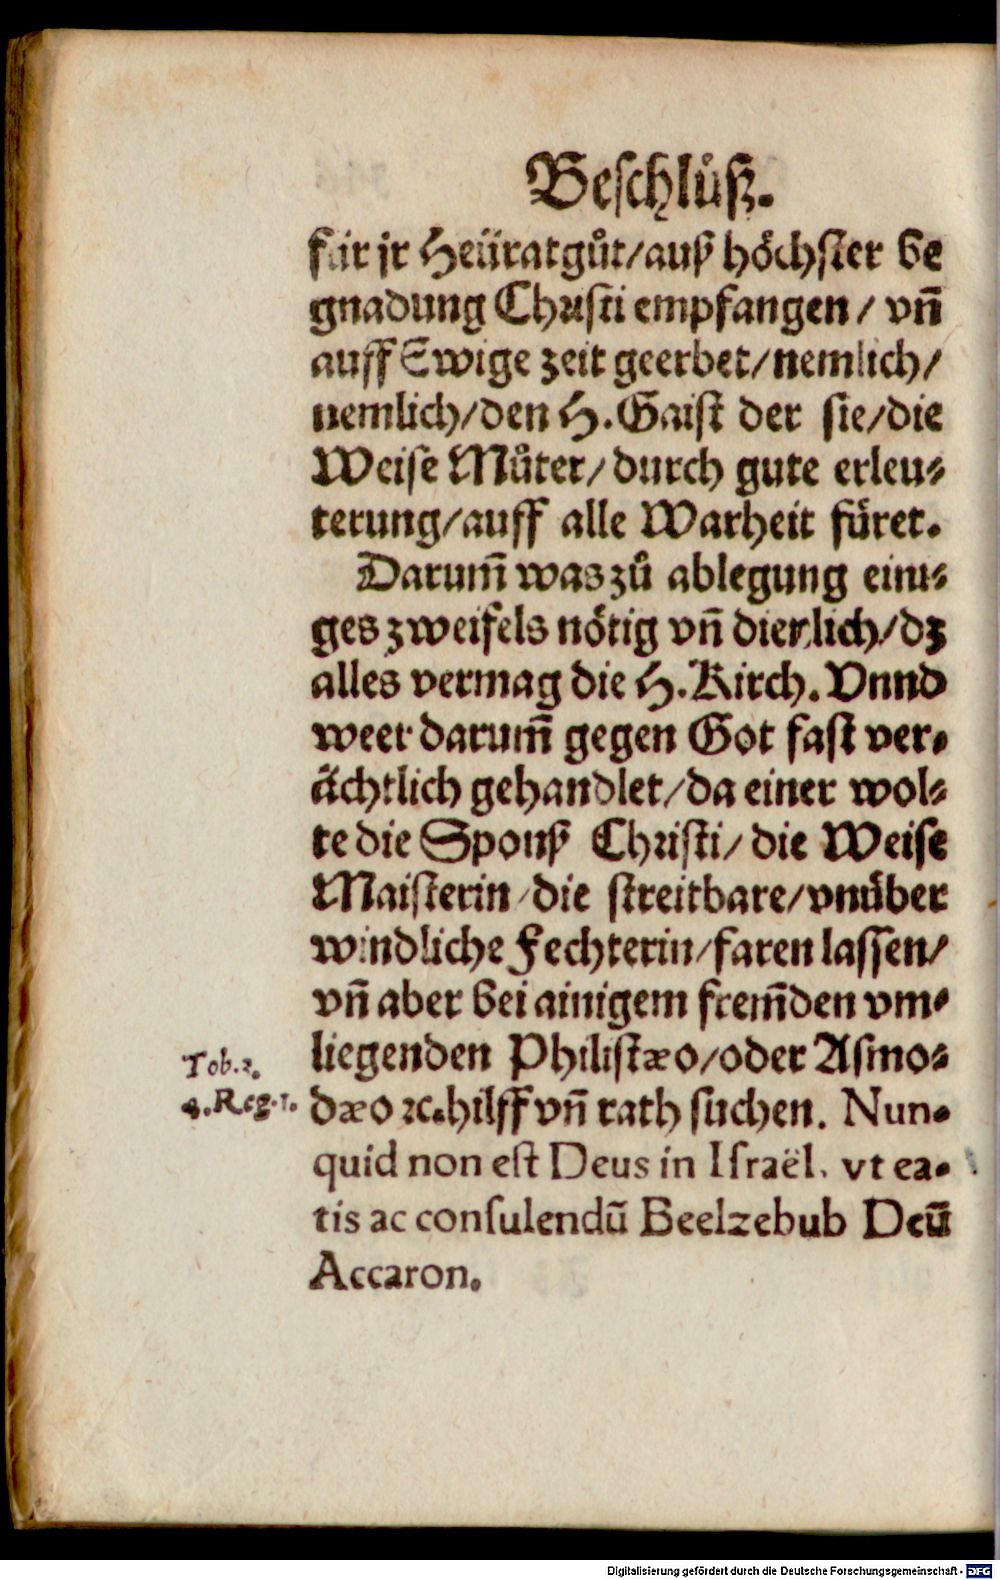 Beſchlůſʒ.
für jr Heüratgůt/auß höchſter be
gnadung Chriſti empfangen/ vñ
auff Ewige zeit geerbet/nemlich/
nemlich/den H. Gaiſt der ſie/die
Weiſe Můter/ durch gute erleu⸗
terung/auff alle Warheit füret.
Darum̃ was zů ablegung eini⸗
ges zweifels nötig vñ dienlich/dz
alles vermag die H. Kirch. Vnnd
weer darum̃ gegen Got faſt ver⸗
ächtlich gehandlet/da einer wol⸗
te die Sponß Chriſti/ die Weiſe
Maiſterin/die ſtreitbare/vnüber
windliche Fechterin/faren laſſen/
vñ aber bei ainigem frem̃den vm⸗
liegenden Philiſtæo/oder Aſmo⸗
Tob.3.
4.Reg.1.
dæo ꝛc.hilff vñ rath ſuchen. Nun⸗
quid non eſt Deus in Iſraël, vt ea⸗
tis ac conſulendũ Beelzebub Deũ
Accaron.
Digitalisierung gefördert durch die Deutsche Forschungsgemeinschaft - DFG